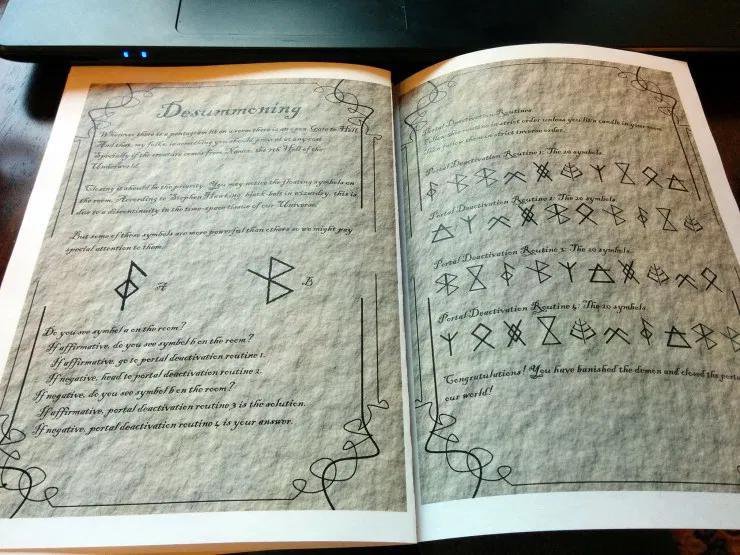 Desummoning
Whenever there is a pentagram lit on a room there is an open Gate to Hell.
And that, my folks, is something you should prevent at any cost.
Specially if the creature comes from the 7th Hell of the
Underworld.
Closing it should be the priority. You may notice the floating symbols on
the room. According to Stephen black-belt in wizardry, this is
due to a discontinuity in the time-space tissue of our Universe.
But some of those symbols are more powerful than others so we might pay
special attention to them:
A
B
Do you see symbol a on the room?
If affirmative, do you see symbol b on the room?
If affirmative, go to portal deactivation routine 1.
If negative, head to portal deactivation routine 2.
If negative, do you see symbol b on the room?
If affirmative, portal deactivation routine 3 is the solution.
If negative, portal deactivation routine 4 is your answer.
Portal Deactivation Routines
Follow this routine in strict order unless you like a candle in your
then follow the in strict inverse order.
Portal Deactivation Routine 1: The 10 symbols.
Portal Deactivation Routine 2: The 10 symbols.
Portal Deactivation Routine 3: The 10 symbols.
Portal Deactivation Routine 4: The 10 symbols.
Congratulations! You have banished the demon and closed the
our world!